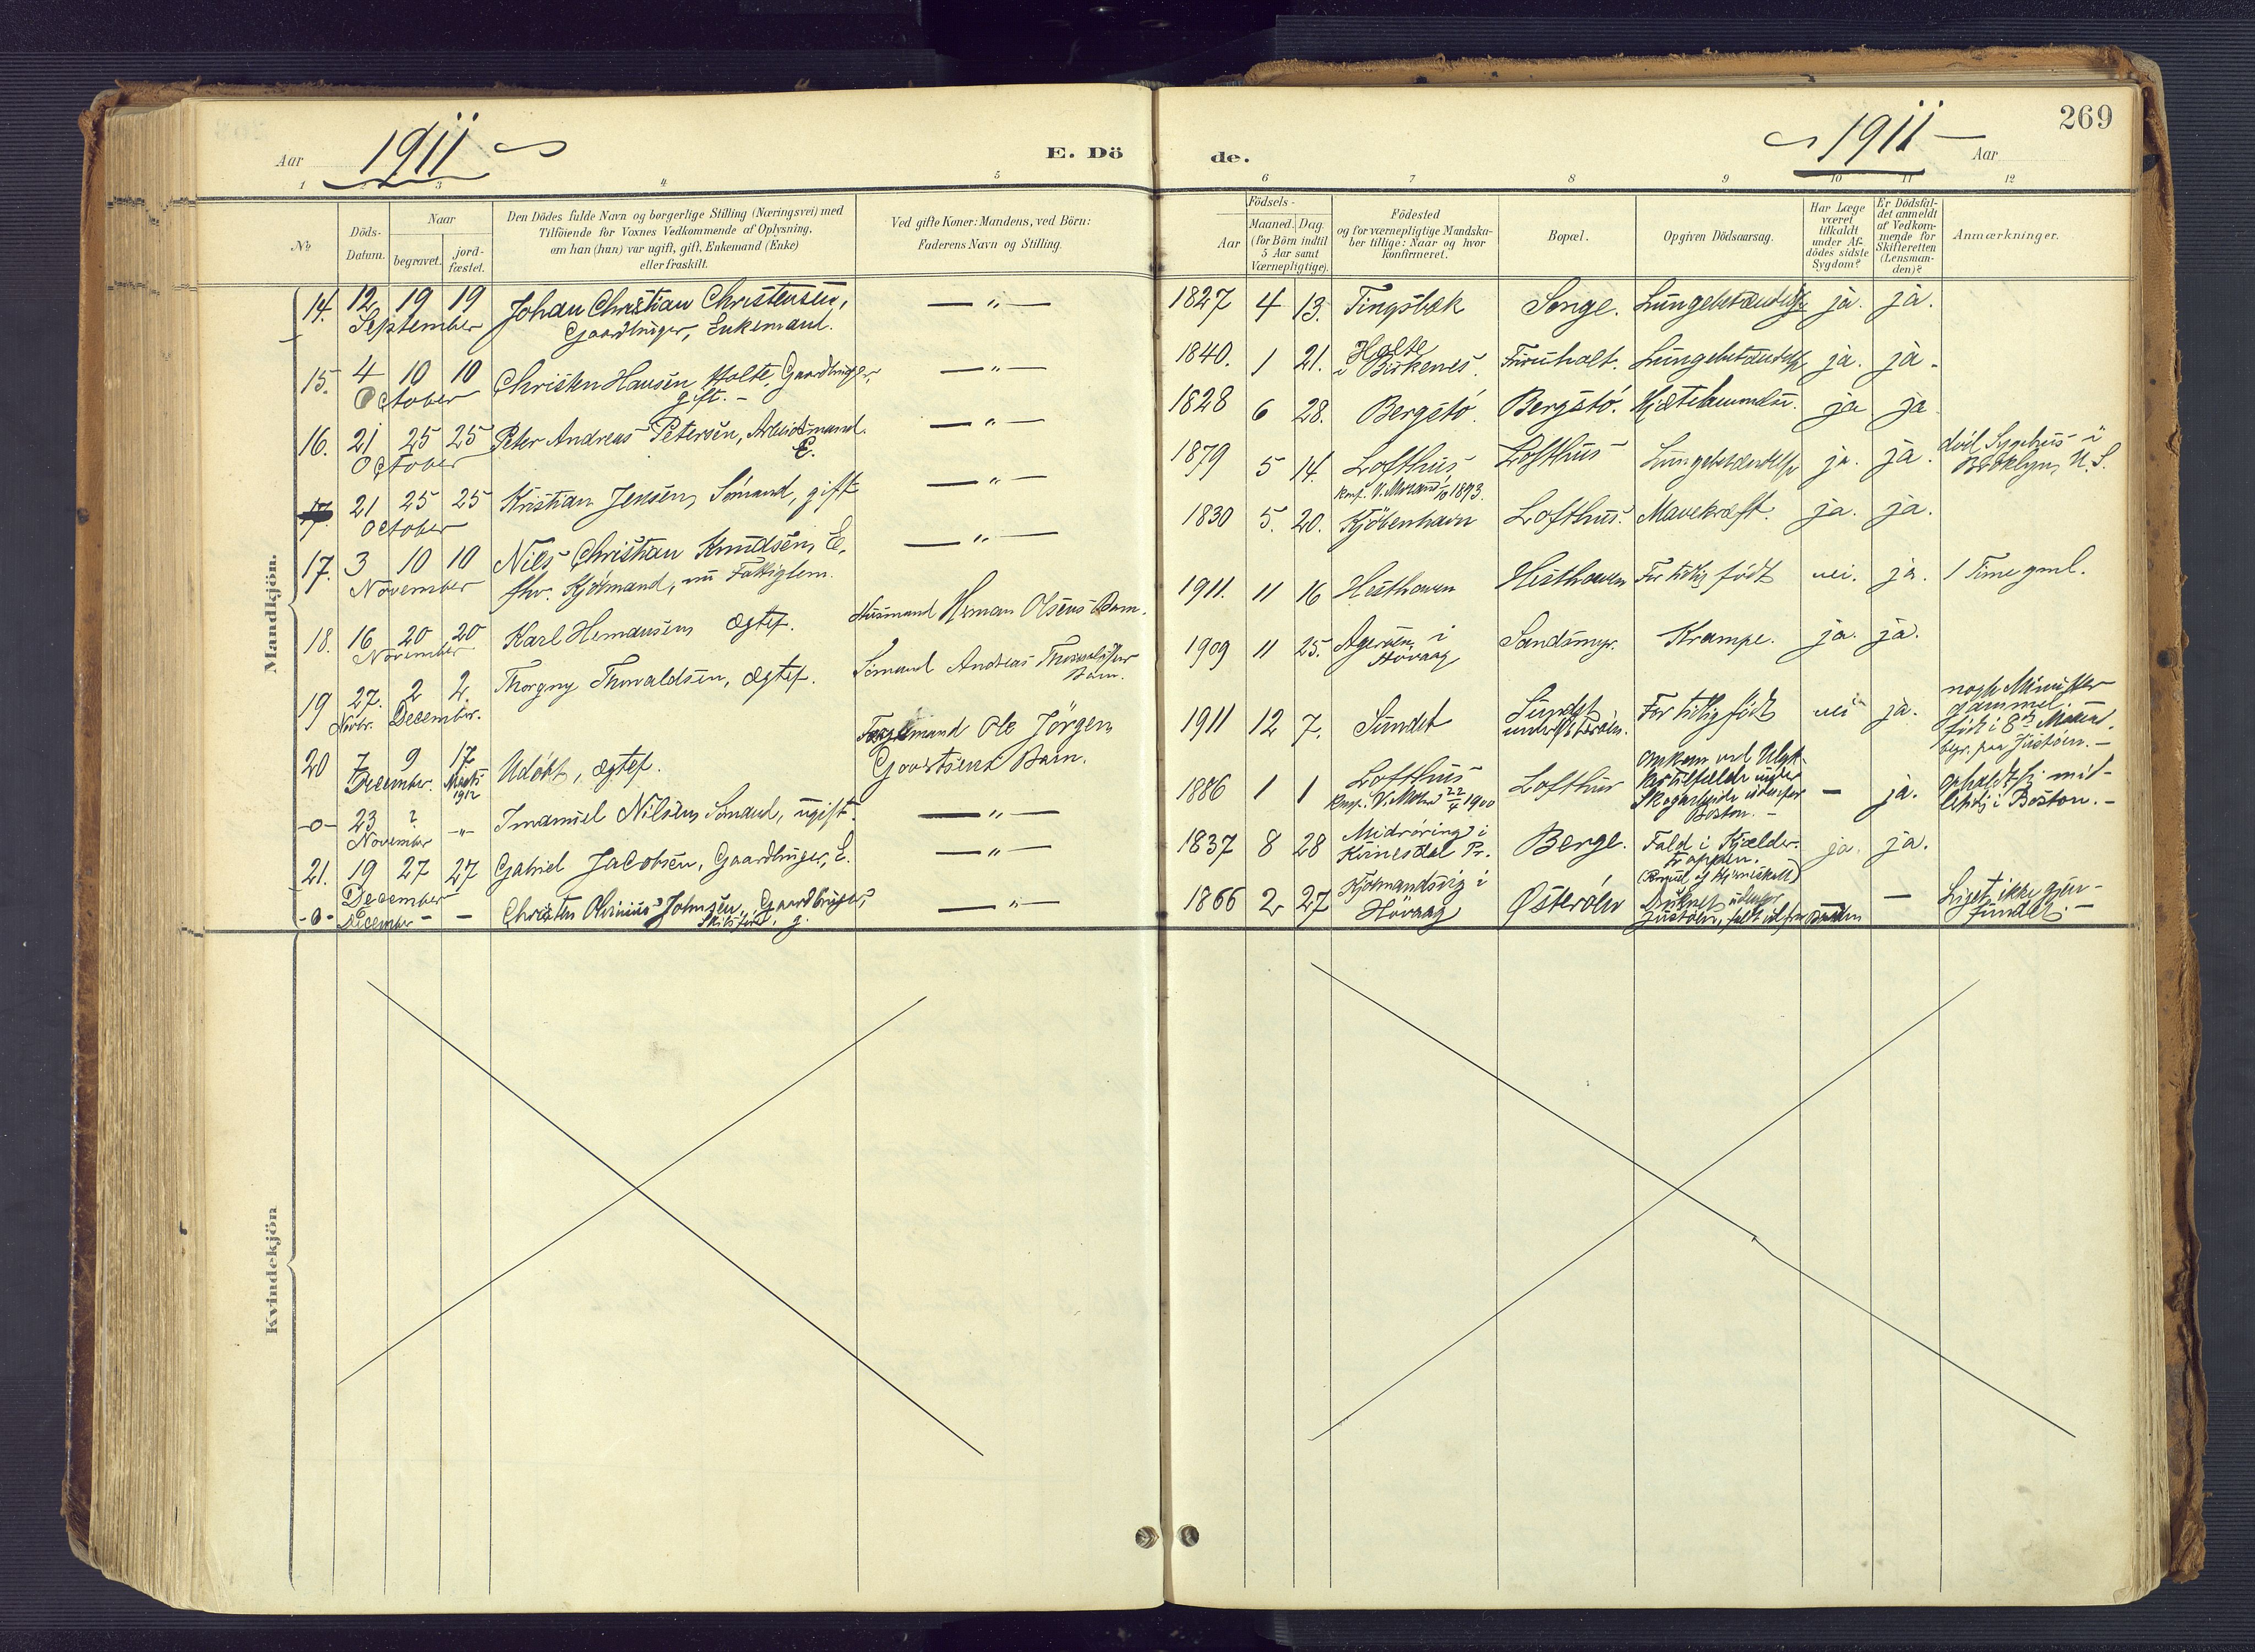 269
Aar 1911
E. Dö
de.
1911
Aar
1
3
4
5
6
7
8
9
10
11
12
№
Döds-
Datum.
Naar
begravet.
jord-
fæstet.
Den Dödes fulde Navn og borgerlige Stilling (Næringsvei) med
Tilföiende for Voxnes Vedkommende af Oplysning,
om han (hun) var ugift, gift, Enkemand (Enke)
eller fraskilt.
Ved gifte Koner: Mandens, ved Börn:
Faderens Navn og Stilling.
Födsels-
Aar
Maaned.
Dag.
(for Börn indtil
5 Aar samt
Værnepligtige).
Födested
og for værnepligtige Mandska-
ber tillige: Naar og hvor
konfirmeret.
Bopæl.
Opgiven Dödsaarsag.
Har Læge
været
tilkaldt
under Af-
dödes sidste
Sygdom?
Er Dödsfal-
det anmeldt
af Vedkom-
mende for
Skifteretten
(Lensman-
den)?
Anmærkninger.
Mandkjön.
14. 12 19 19 Johan Christian Christensen, — „ —
September Gaardbruger, Enkemand.
15. 4 10 10 Christen Hansen Holte, Gaardbruger, — „ —
October gift. -
16. 21 25 25 Peter Andreas Petersen, Arbeidsmand. — „ —
October E.
17. 21 25 25 Kristian Jensen, Sömand, gift — „ —
October
17. 3 10 10 Nils Christian Knudsen, E. — „ —
November fhv. Kjöbmand, nu Fattiglem.
18. 16 20 20 Karl Hermansen ægtef. Husmand Herman Olsens Barn.
November
19 27. 2 2. Thorgny Thorvaldsen, ægtef. Sömand Andreas
Novbr. December. Barn.
20 7 9 17 Udöbt, ægtef. Ole Jörgen
December. Marts
1912
Barn.
-o- 23 ? -„- Imanuel Nilsen, Sömand, ugift. — „ —
November
21. 19 27 27 Gabriel Jacobsen, Gaardbruger, E. — „ —
December
-o- December - - Christen Olvinius Johnsen, Gaardbruger, — „ —
g.
1827 4 13. Tingsbæk Songe. Lungebetændelse ja. ja.
1840. 1 21. Holte
i Birkenes. Furuholt. Lungebetændelse ja. ja.
1828 6 28. Bergstö. Bergstö. ja ja
1879 5 14. Lofthus Lofthus Lungebetændelse ja. ja. död Sygehus i
Brooklyn, U.S.
Konf. V. Moland 1/10 1893.
1830 5. 20. Kjöbenhavn Lofthus. Mavekræft. ja. ja.
1911. 11 16 Hesthaven Hesthaven For tidlig födt nei. ja. 1 Time gml.
1909 11 25. Ageröen i
Hövaag Krampe. ja. ja.
1911 12 7. Sundet Sundet For tidlig födt nei ja. nogle Minutter
gammel.
födt i 8de Maaned.
begr. paa Justöen. -
1886 1 1 Lofthus Lofthus Omkom ved Ulyk-
kestilfælde under
Skogarbeide udenfor
Boston. - — ja.
i Boston. -
Konf. V. Moland 22/4 1900
1837 8 28 i
Kvinesdal Pr. Berge. Fald i Kjælder-
trappen. ja. ja.
1866 2 27 Kjömandsvig i
Hövaag Österöen Druknet udenfor
Justöen, faldt ud fra Baaden — Liget ikke gjen-
fundet. -
Kvindekjön